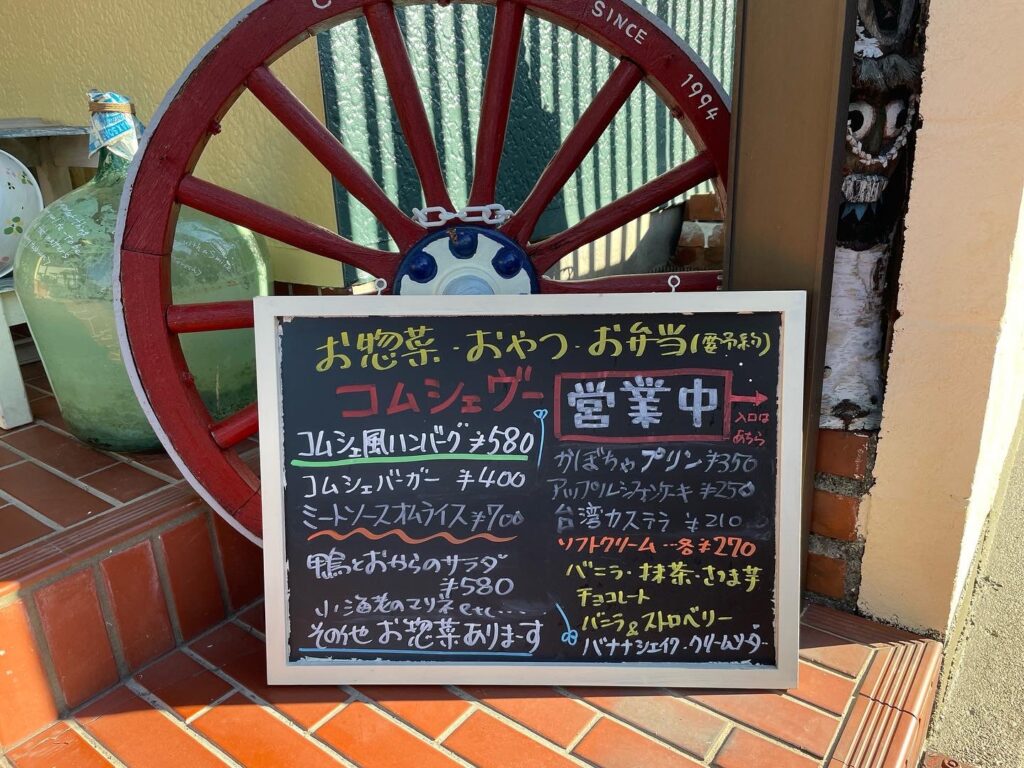 SINCE 1994
お惣菜・おやつ・お弁当(要予約)
コムシェヴー
営業中
入口は
あちら
コムシェ風ハンバーグ ¥580
コムシェバーガー ¥400
ミートソースオムライス ¥700
鴨とおからのサラダ
¥580
小海老のマリネetc....
その他 お惣菜あります
かぼちゃプリン ¥350
アップルシフォンケーキ ¥250
台湾カステラ ¥210
ソフトクリーム…各¥270
バニラ・抹茶・さつま芋
チョコレート
バニラ&ストロベリー
バナナシェイク・クリームソーダー